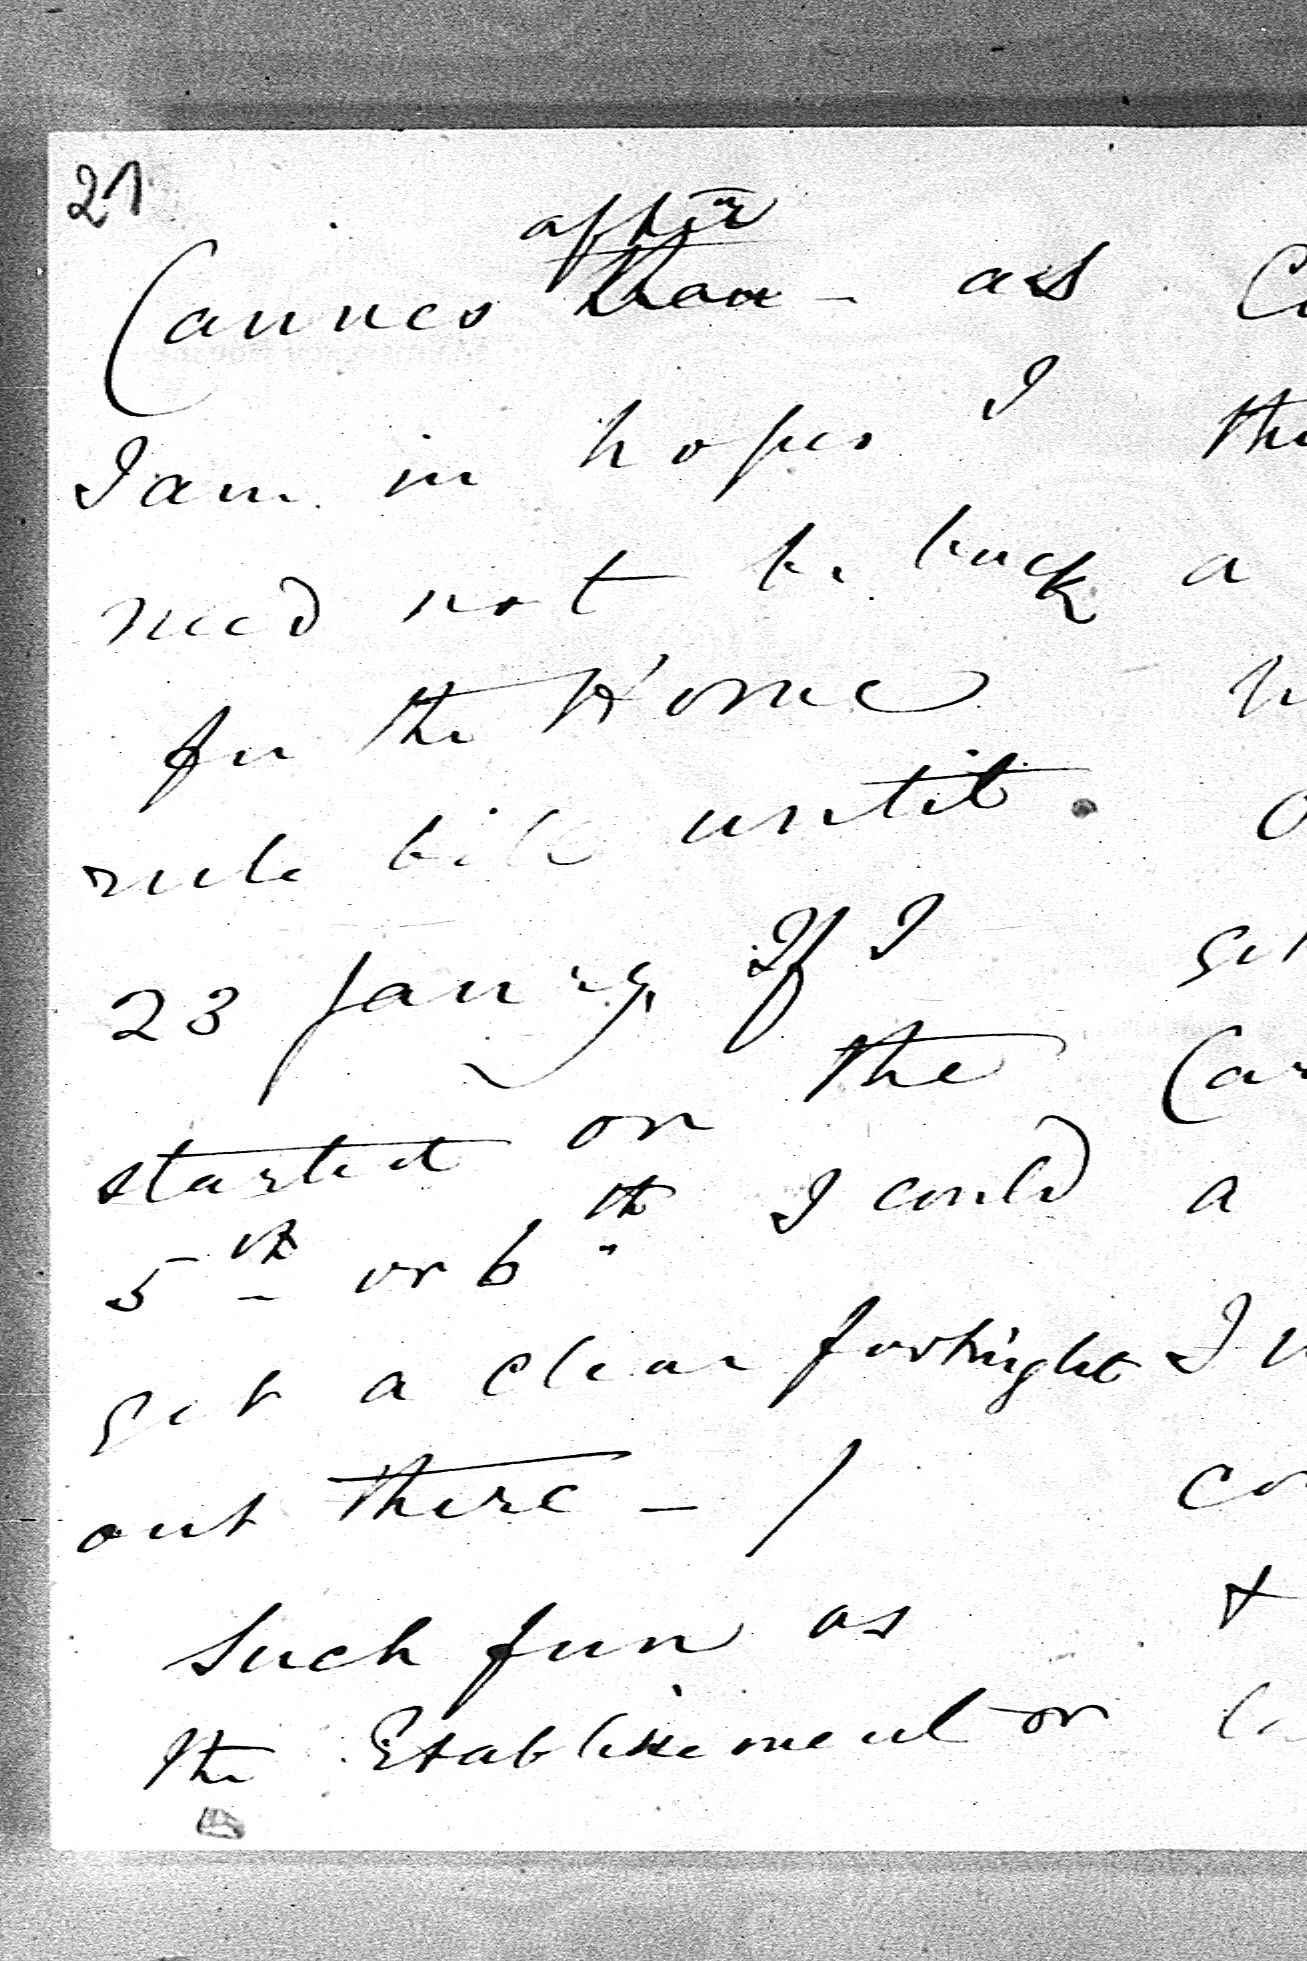 21
after
Cannes than - as
I am in hopes I
need not be back a
for the Home
rule bill until
23 Janry, If I
started on the
5th or 6th I could a
get a clear fortnight I
out there - /
Such fun as +
the Etablissement on